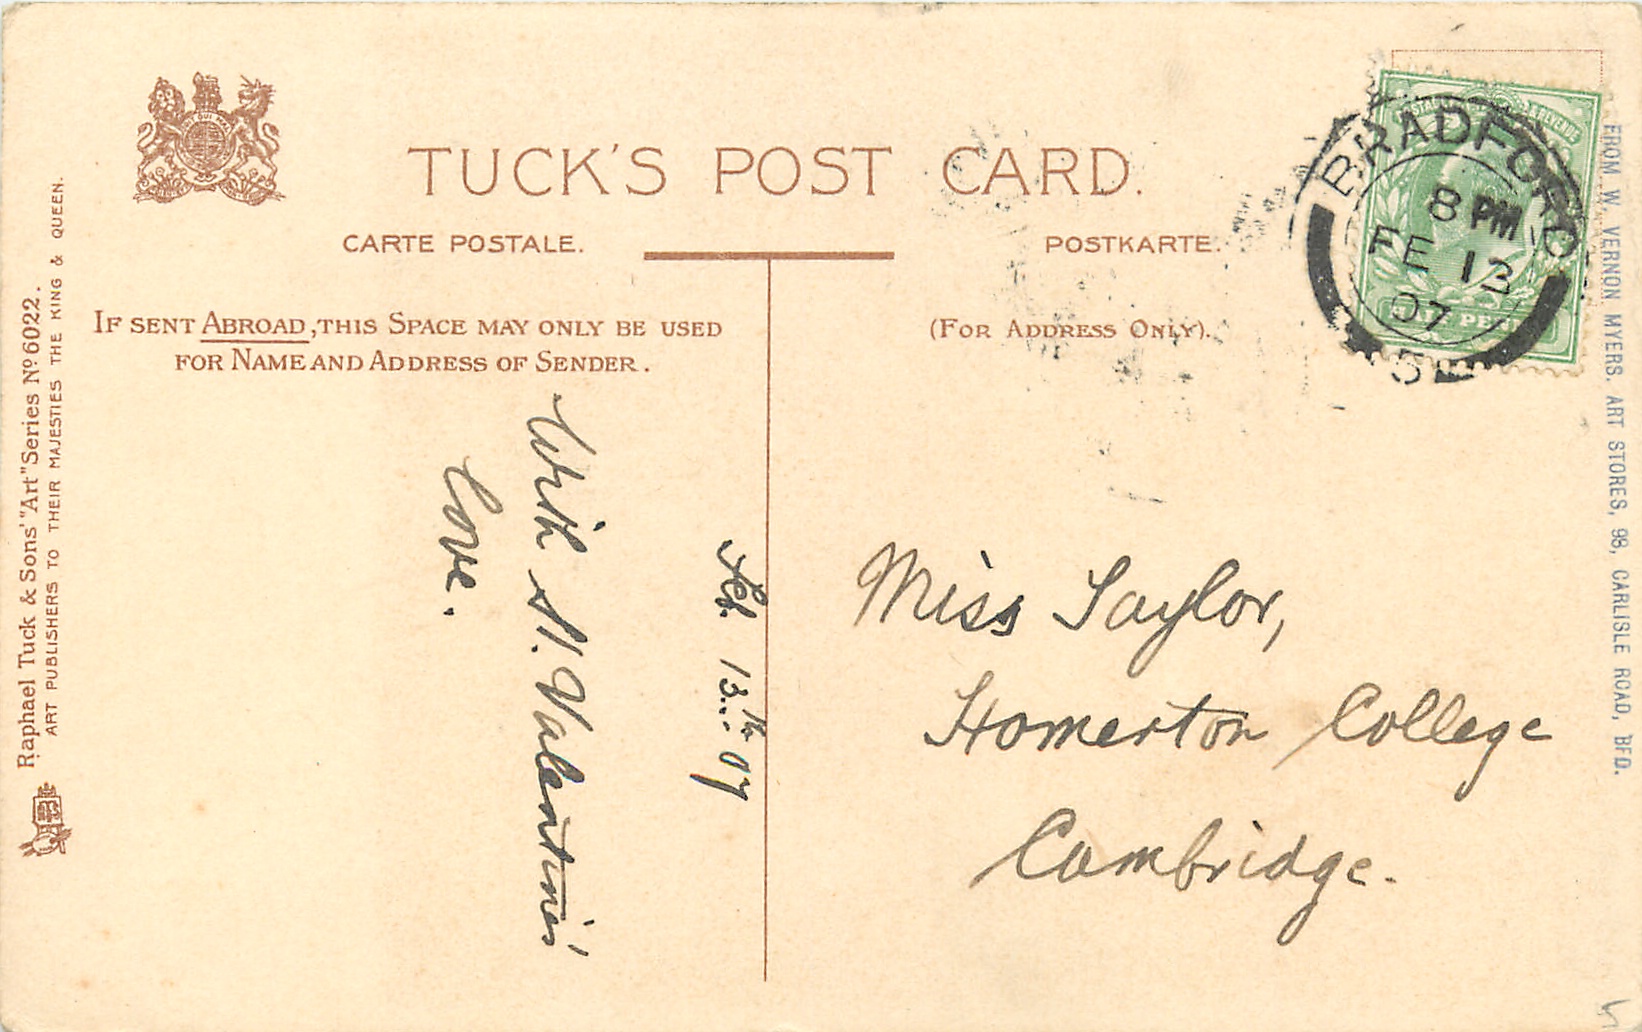 TUCK'S POST CARD.
CARTE POSTALE.
POSTKARTE.
IF SENT ABROAD, THIS SPACE MAY ONLY BE USED
FOR NAME AND ADDRESS OF SENDER.
(FOR ADDRESS ONLY).
BRADFORD
8 PM
FE 13
07
5
HALF PENNY
Feb. 13th 07
With St. Valentine's
love.
Miss Taylor,
Homerton College
Cambridge.
Raphael Tuck & Sons' "Art" Series No. 6022.
ART PUBLISHERS TO THEIR MAJESTIES THE KING & QUEEN.
FROM W. VERNON MYERS. ART STORES, 98, CARLISLE ROAD, BFD.
5